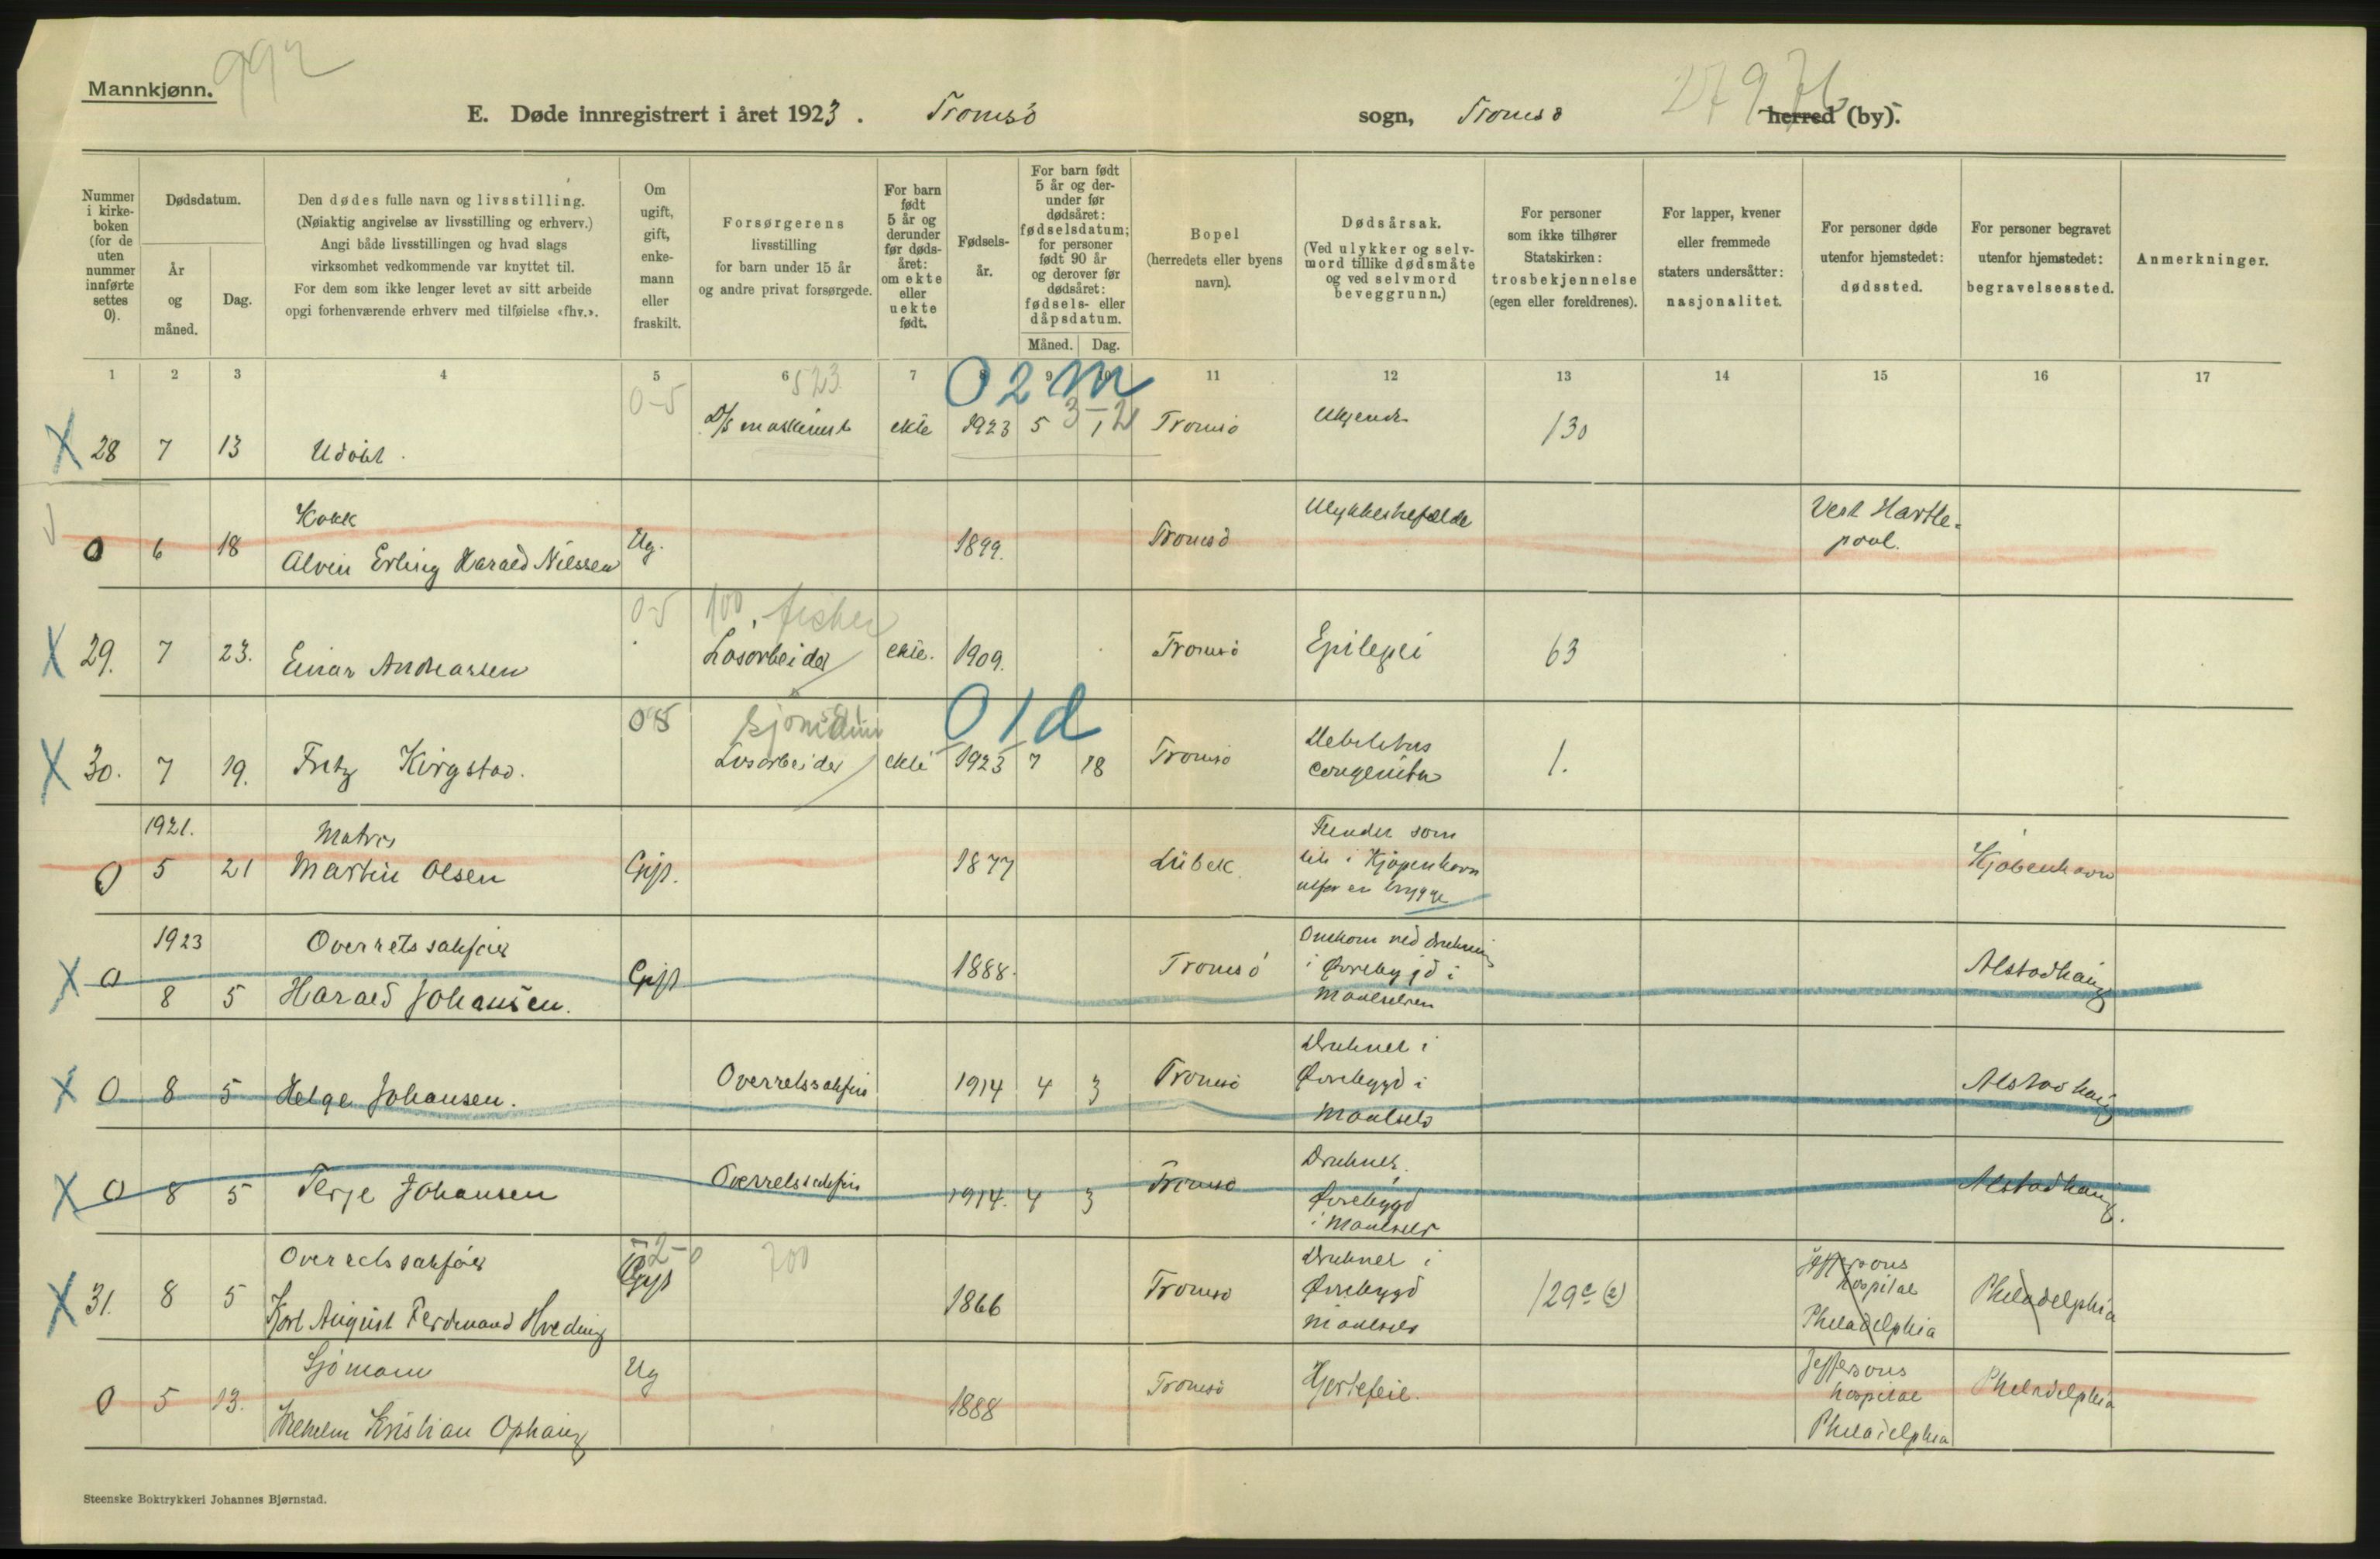 Mannkjønn.
992
E. Døde innregistrert i året 1923. Tromsö sogn, Tromsö herred (by).
279 76
Nummer i kirkeboken (for de uten nummer innførte settes 0).
Dødsdatum.
År og måned.
Dag.
Den dødes fulle navn og livsstilling.
(Nøiaktig angivelse av livsstilling og erhverv.)
Angi både livsstillingen og hvad slags
virksomhet vedkommende var knyttet til.
For dem som ikke lenger levet av sitt arbeide
opgi forhenværende erhverv med tilføielse «fhv.».
Om ugift, gift, enkemann eller fraskilt.
Forsørgerens
livsstilling
for barn under 15 år
og andre privat forsørgede.
For barn født 5 år og derunder før dødsåret: om ekte eller uekte født.
Fødselsår.
For barn født 5 år og derunder før dødsåret: fødselsdatum; for personer født 90 år og derover før dødsåret: fødsels- eller dåpsdatum.
Måned. Dag.
Bopel
(herredets eller byens
navn).
Dødsårsak.
(Ved ulykker og selvmord tillike dødsmåte og ved selvmord beveggrunn.)
For personer
som ikke tilhører
Statskirken:
trosbekjennelse
(egen eller foreldrenes).
For lapper, kvener
eller fremmede
staters undersåtter:
nasjonalitet.
For personer døde
utenfor hjemstedet:
dødssted.
For personer begravet
utenfor hjemstedet:
begravelsessted.
Anmerkninger.
1 2 3 4 5 6 7 8 9 10 11 12 13 14 15 16 17
523
0-5
0 2 m
3-2
X 28 7 13 Udöbt. D/s maskinist ekte 1923 5 1 Tromsö Ukjendt 130
0 6 18 Kokk
Alvin Erling Harald Nilssen Ug. 1899. Tromsö Ulykkeshefælde Vest Hartlepool.
0-5 100, fisker
X 29. 7 23. Einar Andreassen Lösarbeider ekte. 1909. Tromsö Epilepsi 63
0-5 0 1 d
X 30. 7 19. Fritz Kirgstad. Lösarbeider ekte 1923 7 18 Tromsö Debilitas
congenita 1.
1921.
0 5 21 Matros
Martin Olsen Gift. 1877 Lübek. Funder som
lik i Kjöpenhavn
utfor en brygge Kjöbenhavn
1923
X 0 8 5 Overretssakförer
Harald Johansen. Gift 1888. Tromsö Omkom ved drukning
i Øverbygd i
Maalselven Alstadhaug
X 0 8 5 Helge Johansen. Overretssakförer 1914 4 3 Tromsö Druknet i
Øverbygd i
Maalselv Alstadhaug
X 0 8 5 Terje Johansen Overretssakförer 1914. 4 3 Tromsö Druknet.
Øverbygd
i Maalselv Alstadhaug.
2-0 700
X 31. 8 5 Overretssakförer
Karl August Ferdinand Hveding Gift 1866 Tromsö Druknet i
Øverbygd
Maalselv 129c (2) Jeffersons
hospital
Philadelphia Philadelphia
0 5 13. Sjömann
Wilhelm Kristian Ophaug Ug 1888 Tromsö Hjertefeil. Jeffersons
hospital
Philadelphia Philadelphia
Steenske Boktrykkeri Johannes Bjørnstad.